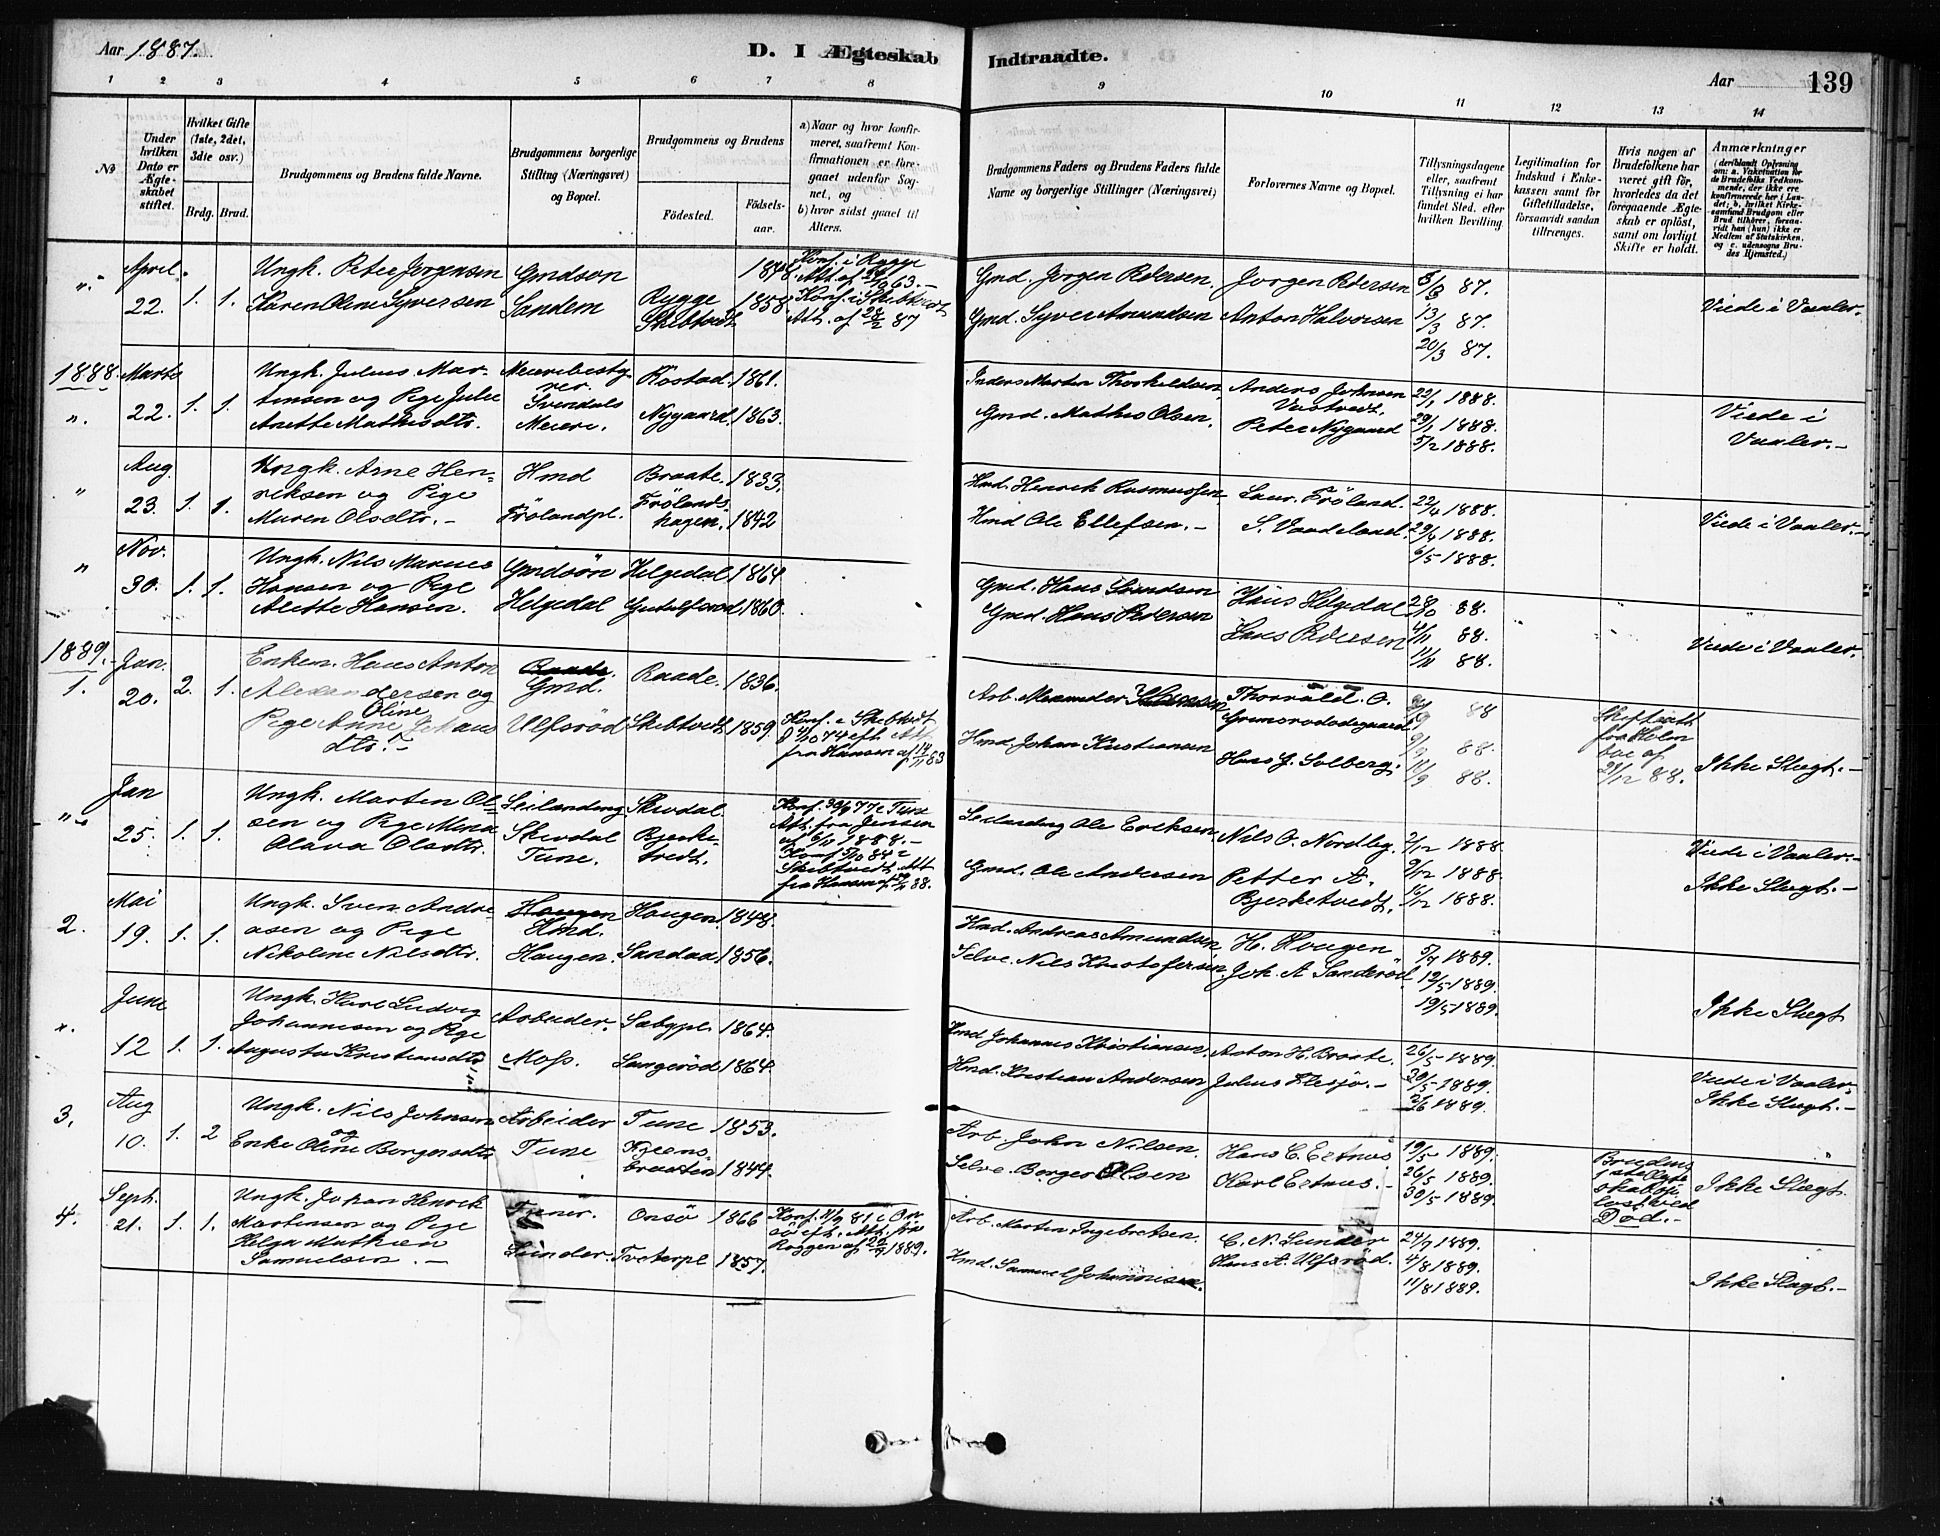 Aar 1887.
D. I Ægteskab Indtraadte.
Aar 139
1 2 3 4 5 6 7 8 9 10 11 12 13 14
No
Under hvilken Dato er Ægteskabet stiftet.
Hvilket Gifte (1ste, 2det, 3die osv.)
Brdg. Brud.
Brudgommens og Brudens fulde Navne.
Brudgommens borgerlige Stilling (Næringsvei) og Bopæl.
Brudgommens og Brudens
Fødested. Fødselsaar.
a) Naar og hvor konfirmeret, saafremt Konfirmationen er foregaaet udenfor Sognet, og
b) hvor sidst gaaet til Alters.
Brudgommens Faders og Brudens Faders fulde Navne og borgerlige Stillinger (Næringsvei)
Forlovernes Navne og Bopæl.
Tillysningsdagene eller, saafremt Tillysning ei har fundet Sted, efter hvilken Bevilling.
Legitimation for Indskud i Enkekassen samt for Giftetilladelse, forsaavidt saadan tiltrænges.
Hvis nogen af Brudefolkene har været gift før, hvorledes da det foregaaende Ægteskab er opløst, samt om lovligt Skifte er holdt.
Anmærkninger
April 22. 1. 1.
Ungk. Peter Jørgensen
Karen Oline Syversen
Gmdsøn
Sandem
Rygge
Skibtvedt
1848.
1858.
Konf. i Rygge
Konf. i Skibtvedt
Att. af 28/2 87
Gmd. Jørgen Pedersen.
Gmd. Syver Amundsen
Jørgen Pedersen
Anton Halvorsen
6/3 87.
13/3 87.
20/3 87.
Viede i Vaaler.
1888.
Marts 22. 1. 1.
Ungk. Julius Martinsen og Pige Julie
Anette Mathisdtr.
Meieribestyrer.
Svendals
Meieri.
Kostad. 1861.
Nygaard. 1863.
Inders Martin Thorkildsen
Gmd. Mathis Olsen.
Anders Johnsen
Peter Nygaard
22/1 1888.
29/1 1888.
5/2 1888.
Viede i
Vaaler.-
Aug. 23. 1. 1.
Ungk. Arne Henriksen og Pige
Maren Olsdtr. -
Hmd
Frölandpl.
Braate. 1833.
Frölandshagen. 1842
Hmd. Henrik Rasmussen.
Hmd Ole Ellefsen. -
Laur. Fröland.
S. Vaadeland.
22/4 1888.
29/4 1888.
6/5 1888.
Viede i Vaaler.-
Nov. 30. 1. 1.
Ungk. Nils Marius
Hansen og Pige
Alette Hansen.
Gmdsön
Helgedal
Helgedal 1864.
1860.
Gmd. Hans
Gmd. Hans Pedersen
Hans Helgedal
Lars Pedersen
28/10 88.
4/11 88.
11/11 88.
Viede i Vaaler.
1889.
1. Jan. 20. 2. 1.
Enkem. Hans Anton
Alexandersen og
Pige Anne Oline Johansdtr. -
Gmd.
Ulfsröd
Raade. 1836.
Skibtvedt 1859.
Konf. i Skibtvedt
4/10 74 efter Att.
fra Hansen af
Hmd. Johan Kristiansen
Thorvald O.
Grimsrødødegaard
Hans J. Solberg.
88
88.
88.
Skifteatt.
fra Holm
boe af
21/12 88.
Ikke Slægt.-
Jan 25. 1. 1.
Ungk. Martin Olsen og Pige Mina
Olava Olsdtr.
Leilænding
Skivdal
Tune.
Skivdal
Bjerketvedt.
Konf. 30/9 77 i Tune
Att. fra Jensen
af 6/11 1888. -
Konf 5/10 84 i
Skibtvedt. Att
fra Hansen af
Leilænding Ole Eriksen
Gmd. Ole Andersen
Nils O. Nordby.
Petter A.
Bjerketvedt.
2/12 1888
9/12 1888.
16/12 1888.
Viede i Vaaler.-
Ikke Slægt.-
2. Mai 19. 1. 1.
Ungk. Sven Andreasen og Pige
Nikoline Nilsdtr.
Hmd.
Haugen.
Haugen. 1848.
Sandaa 1856.
Hmd. Andreas Amundsen
Selve. Nils Kristofersen
H. Haugen
Joh. A Sanderöd
5/5 1889.
12/5 1889.
19/5 1889.
Ikke Slægt
June 12 1. 1.
Ungk. Karl Ludvig
Johannesen og Pige
Augusta Kristiansdtr
Arbeider.
Moss.
Sæbypl. 1864.
Langeröd 1864.
Hmd Johannes Kristiansen.
Hmd. Kristian Andersen
Anton H. Braate.
Julius Flesjö. -
26/5 1889.
30/5 1889.
2/6 1889.
Viede i Vaaler
Ikke Slægt.-
3. Aug 10. 1. 2
Ungk. Nils Johnsen
og
Enke Oline Borgersdtr
Arbeider
Tune
Tune 1853.
Kjernsbraaten 1844.
Arb. John Nilsen.
Selve. Borger Olsen
Hans C. Ertnus
Karl Ertnus. -
19/5 1889.
26/5 1889.
30/5 1889.
Brudens
1ste Ægteskab
Død.-
Ikke Slægt.
4. Sept. 21. 1. 1.
Ungk. Johan Henrik
Martensen og Pige
Helga Mathea
Samuelsen. -
Tjener.
Lunder.
Onsö 1866
Tveterpl 1857.
Konf. 11/9 81 i Onsö eft. Att. fra
Roggen af 22/9 1889.
Arb. Martin Ingebretsen.
Hmd. Samuel Johannesen.
C. N. Lunder
Hans A. Ulfsröd.
24/9 1889.
4/8 1889.
11/8 1889.
Ikke Slægt.-